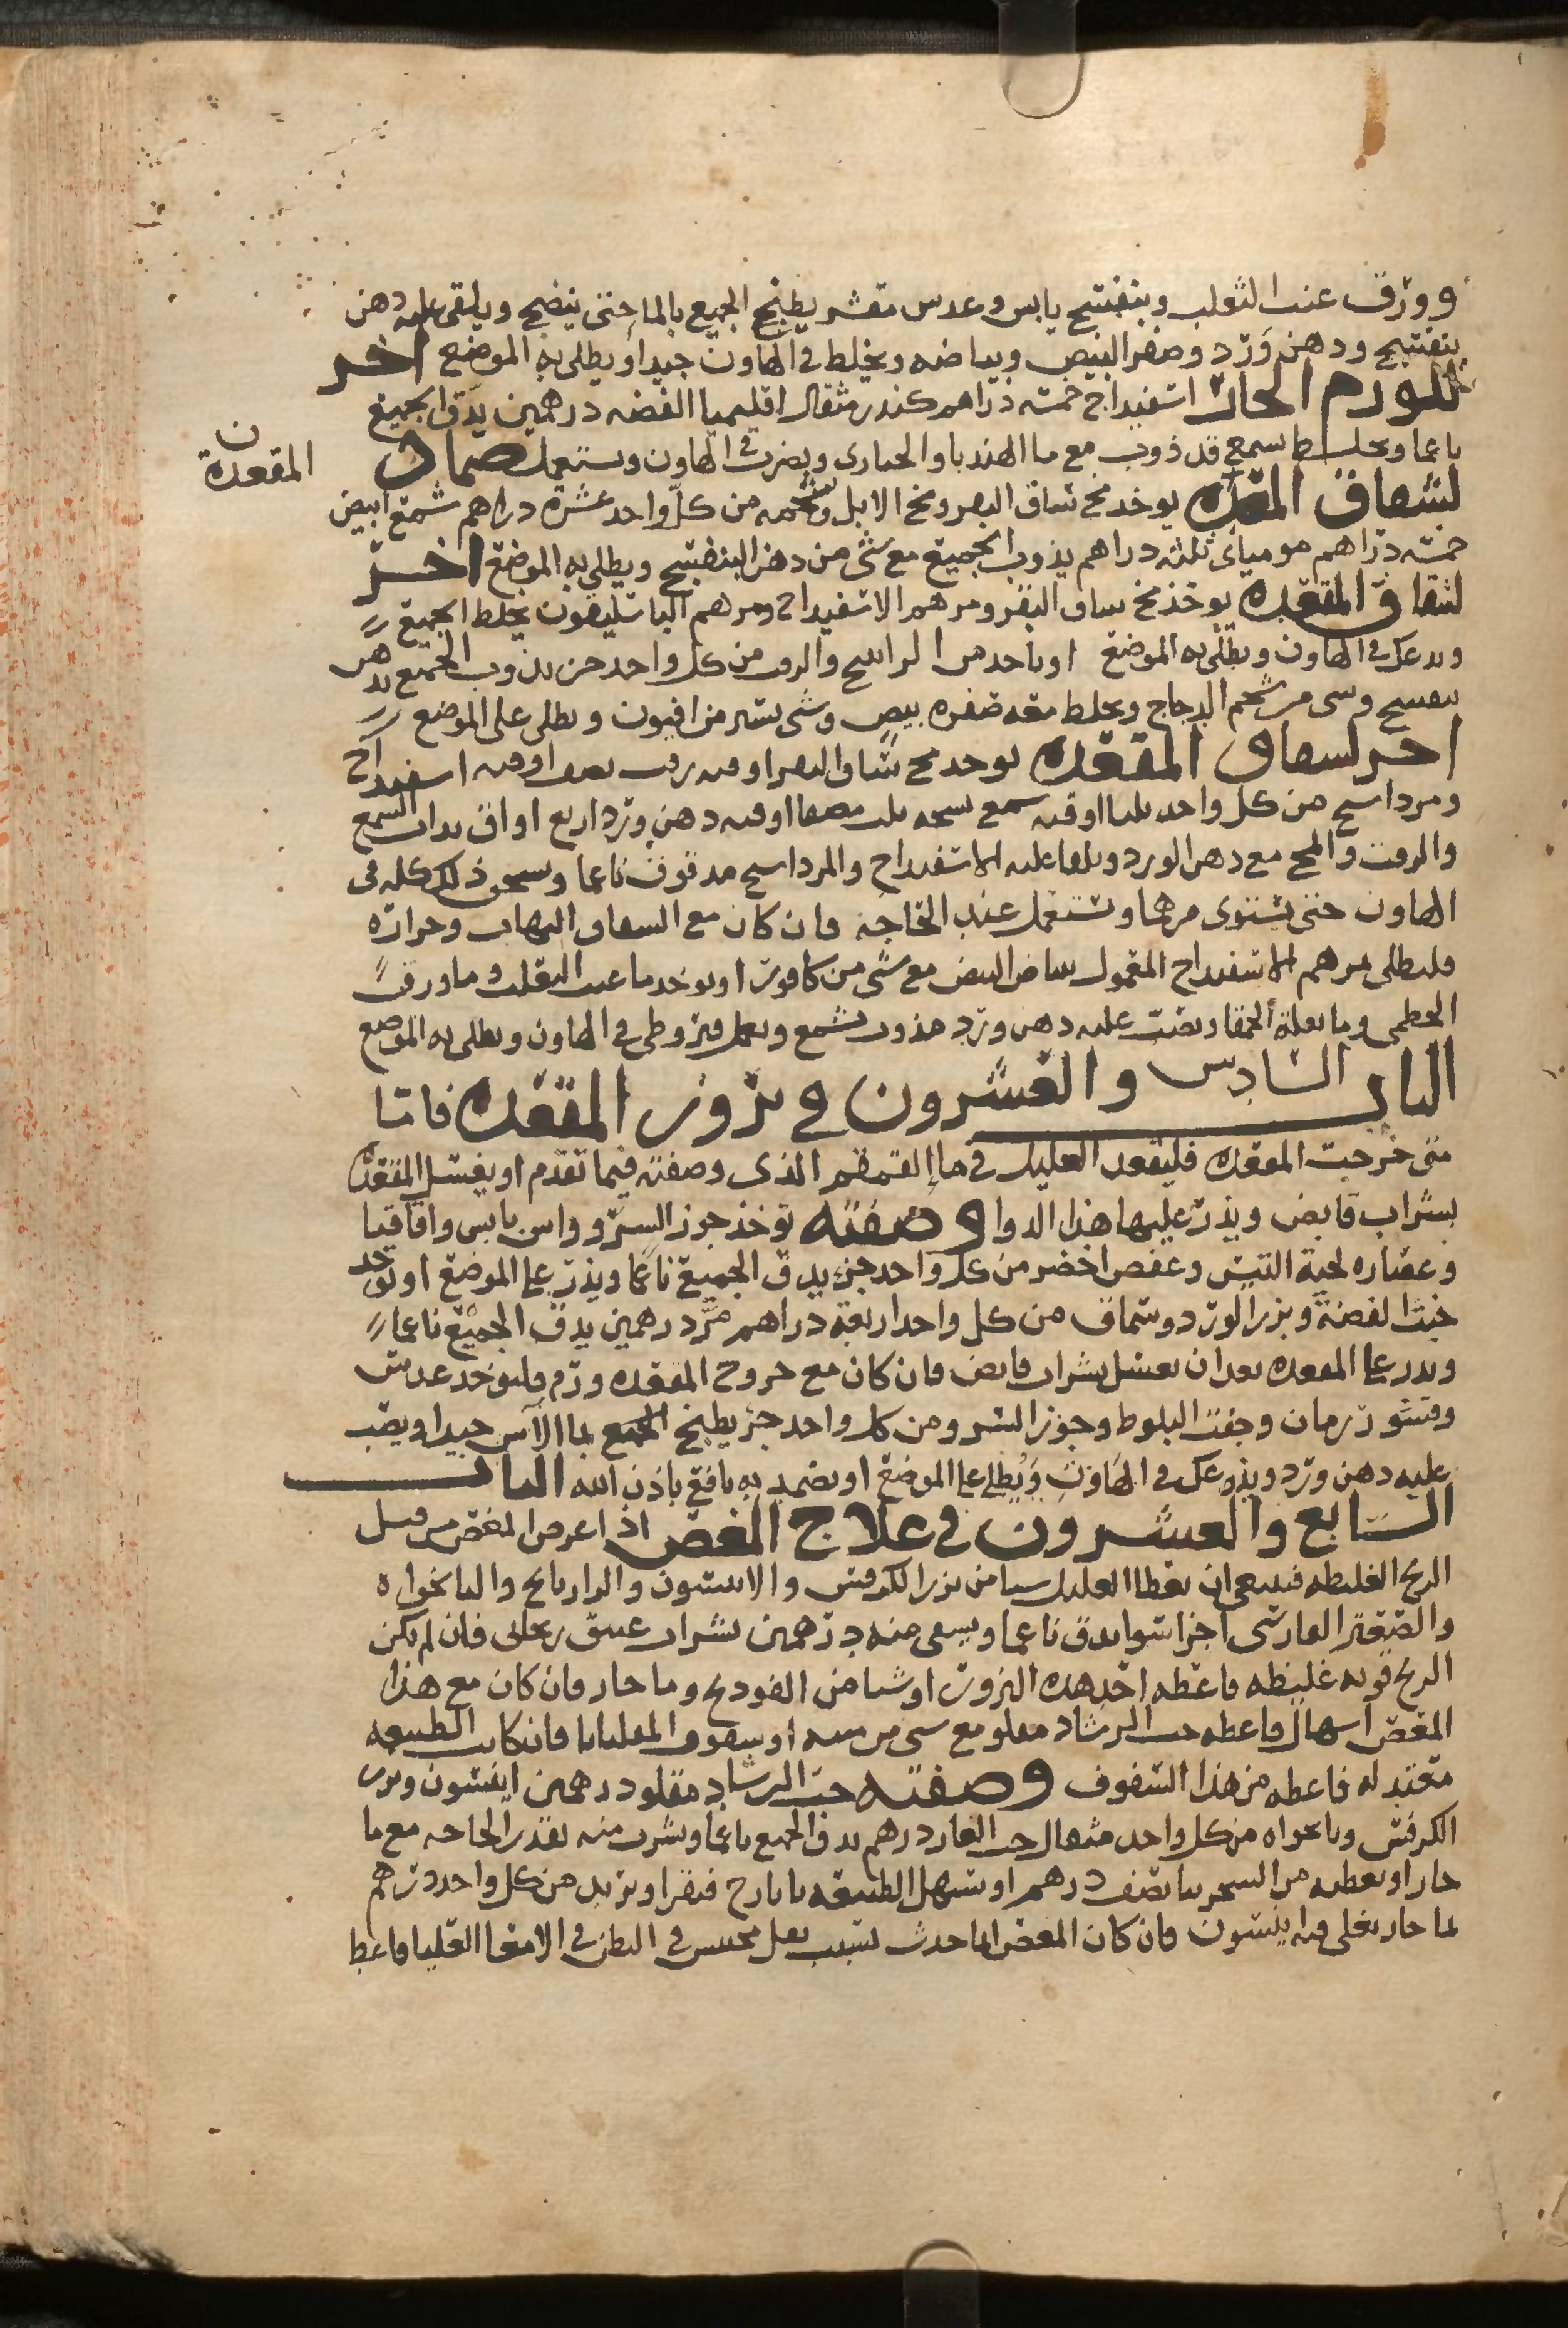 وورق عنب الثعلب وبنفسج يابس وعدس مقشر يطبخ الجميع بالما حتى ينضج ويلقى عليه دهن
بنفسج ودهن ورد وصفر البيض وبياضه ويخلط في الهاون جيدا ويطلى به الموضع اخر
للورم الحار اسفيداج خمسة دراهم كندر مثقال اقليميا الفضه درهمين يدق الجميع
ناعما ويخلط بشمع قد ذوب مع ما الهندبا والخبازى ويضرب في الهاون ويستعمل ضماد
المقعدة
لشقاق المقعده يوخد مخ ساق البقر ومخ الابل وشحمه من كل واحد عشرة دراهم شمع ابيض
خمسه دراهم موميائ ثلثه دراهم يذوب الجميع مع شى من دهن البنفسج ويطلى به الموضع اخر
لشقاق المقعده يوخذ مخ ساق البقر ومرهم الاسفيداج ومرهم الباسليقون يخلط الجميع
ويدعك في الهاون ويطلى به الموضع او ياخد من الراتينج والزفت من كل واحد جز يذوب الجميع بدهن
بنفسج وشى من شحم الدجاج ويخلط معه صفره بيض وشى يسير من افيون ويطلى على الموضع
اخر لشقاق المقعده يوخد مخ ساق البقر اوقيه زفت نصف اوقيه اسفيداج
ومرداسنج من كل واحد اوقيه شمع دهن ورد اربع اواق يداب الشمع
والزفت والمخ مع دهن الورد ويلقا عليه الاسفيداج والمرداسنج مدقوق ناعما ويسحق ذلك كله في
الهاون حتى يستوى مرهما ويستعمل عند الحاجة فان كان مع الشقاق التهاب وحرارة
فليطلى بمرهم الاسفيداج المعمول ببياض البيض مع شى من كافور او يوخد ما عنب الثعلب وما ورق
الخطمى وما بقلة الحمقا ويضرب عليه دهن ورد مذوب بشمع ويعمل قيروطى في الهاون ويطلى به الموضع
الباب السادس والعشرون في بروز المقعده فاما
متى خرجت المقعده فليقعد العليل في ما القمقم الذى وصفته فيما تقدم او يغسل المقعدة
بشراب قابض ويذر عليها هذا الدوا وصفته توخذ جوز السرو واس يابس واقاقيا
وعصاره لحية التيس وعفص اخضر من كل واحد جز يدق الجميع ناعما ويذر على الموضع او توخد
خبث الفضة وبزر الورد وسماق من كل واحد اربعة دراهم مر درهمين يدق الجميع ناعما
ويذر على المقعده بعد ان تغسل بشراب قابض فان كان مع خروج المقعده ورم فليوخد عدس
وقشور رمان وجفت البلوط وجوز السرو من كل واحد جز يطبخ الجميع بما الآس جيدا ويصب
عليه دهن ورد ويدعك في الهاون ويطلى على الموضع او يضمد به نافع باذن الله الباب
السابع والعشرون في علاج المغص اذا عرض المغص من قبل
الريح الغليظه فينبغى ان يعطا العليل شيا من بزر الكرفس والانيسون والرازيانج والنانخواه
والصعتر الفارسى اجزا سوا يدق ناعما ويسقى منه درهمين بشراب عتيق ريحانى فان لم تكن
الريح قويه غليظه فاعطه احد هذه البزور او شيا من الفودنج وما حار فان كان مع هذا
المغص اسهال فاعطه حب الرشاد مقلو مع شى من او سفوف المقلياثا فان كانت الطبيعه
معتدله فاعطه من هذا السفوف وصفته حب الرشاد مقلو درهمين انيسون وبزر
الكرفس ونانخواه من كل واحد مثقال حب الغار درهم يدق الجميع ناعما ويشرب منه بقدر الحاجه مع ما
حار او يعطيه من السجزنيا نصف درهم او تسهل الطبيعه بايارج فيقرا وتربد من كل واحد درهم
بما حار يغلى فيه انيسون فان كان المغص انما حدث بسبب ثفل محتبس في البطن في الامعا العليا فاعط